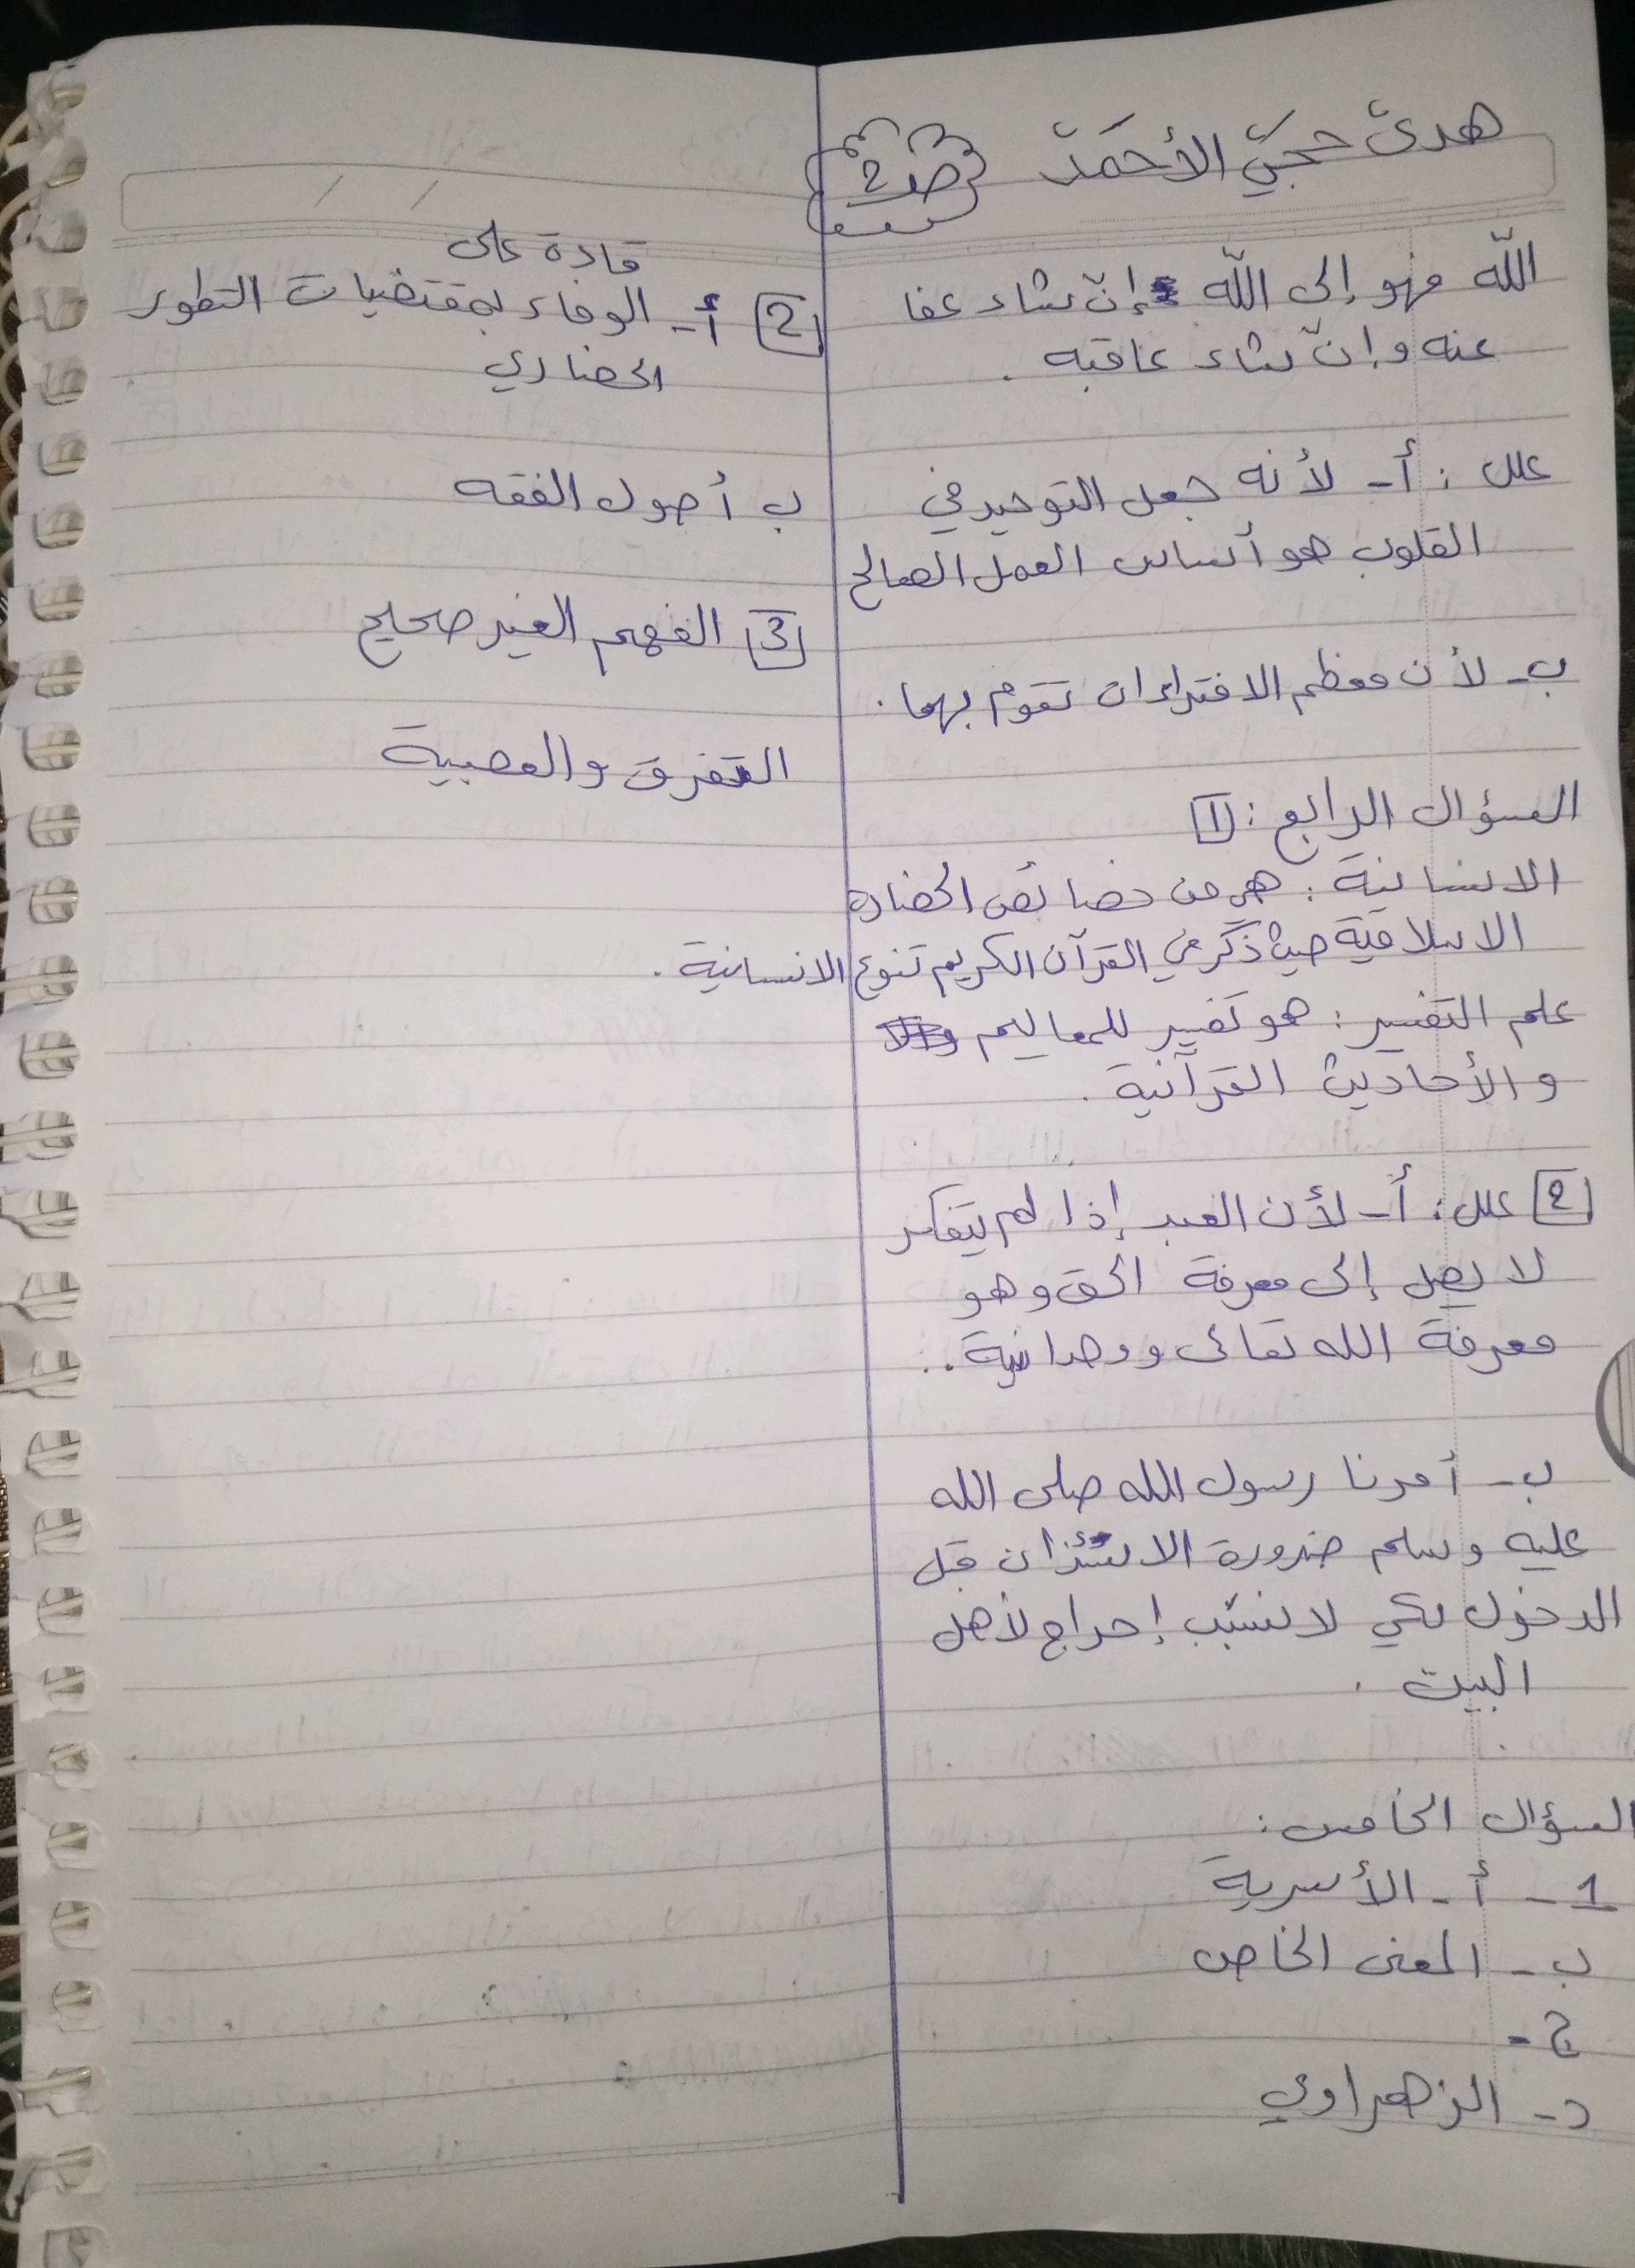 هدى حجي الأحمد
ص2
الله فهو إلى الله إن شاء عفا
عنه وإن شاء عاقبه .
علل : أ- لأنه جعل التوحيد في
القلوب هو أساس العمل الصالح
ب- لأن معظم الافتراءات تقوم بهما .
السؤال الرابع : 1
الانسانية : هي من خصائص الحضارة
الاسلامية حيث ذكر في القرآن الكريم تنوع الانسانية .
علم التفسير : هو تفسير للمعاليم
والأحاديث القرآنية .
2 علل : أ- لأن العبد إذا لم يتفكر
لا يصل إلى معرفة الحق وهو
معرفة الله تعالى ووحدانية .
ب- أمرنا رسول الله صلى الله
عليه وسلم ضرورة الاستئذان قبل
الدخول لكي لا نسبب إحراج لأهل
البيت .
السؤال الخامس :
1- أ- الأسرية
ب- المعنى الخاص
ج-
د- الزهراوي
قادة على
2 أ- الوفاء بمقتضيات التطور
الحضاري
ب أصول الفقه
3 الفهم الغير صحيح
التفرق والعصبية